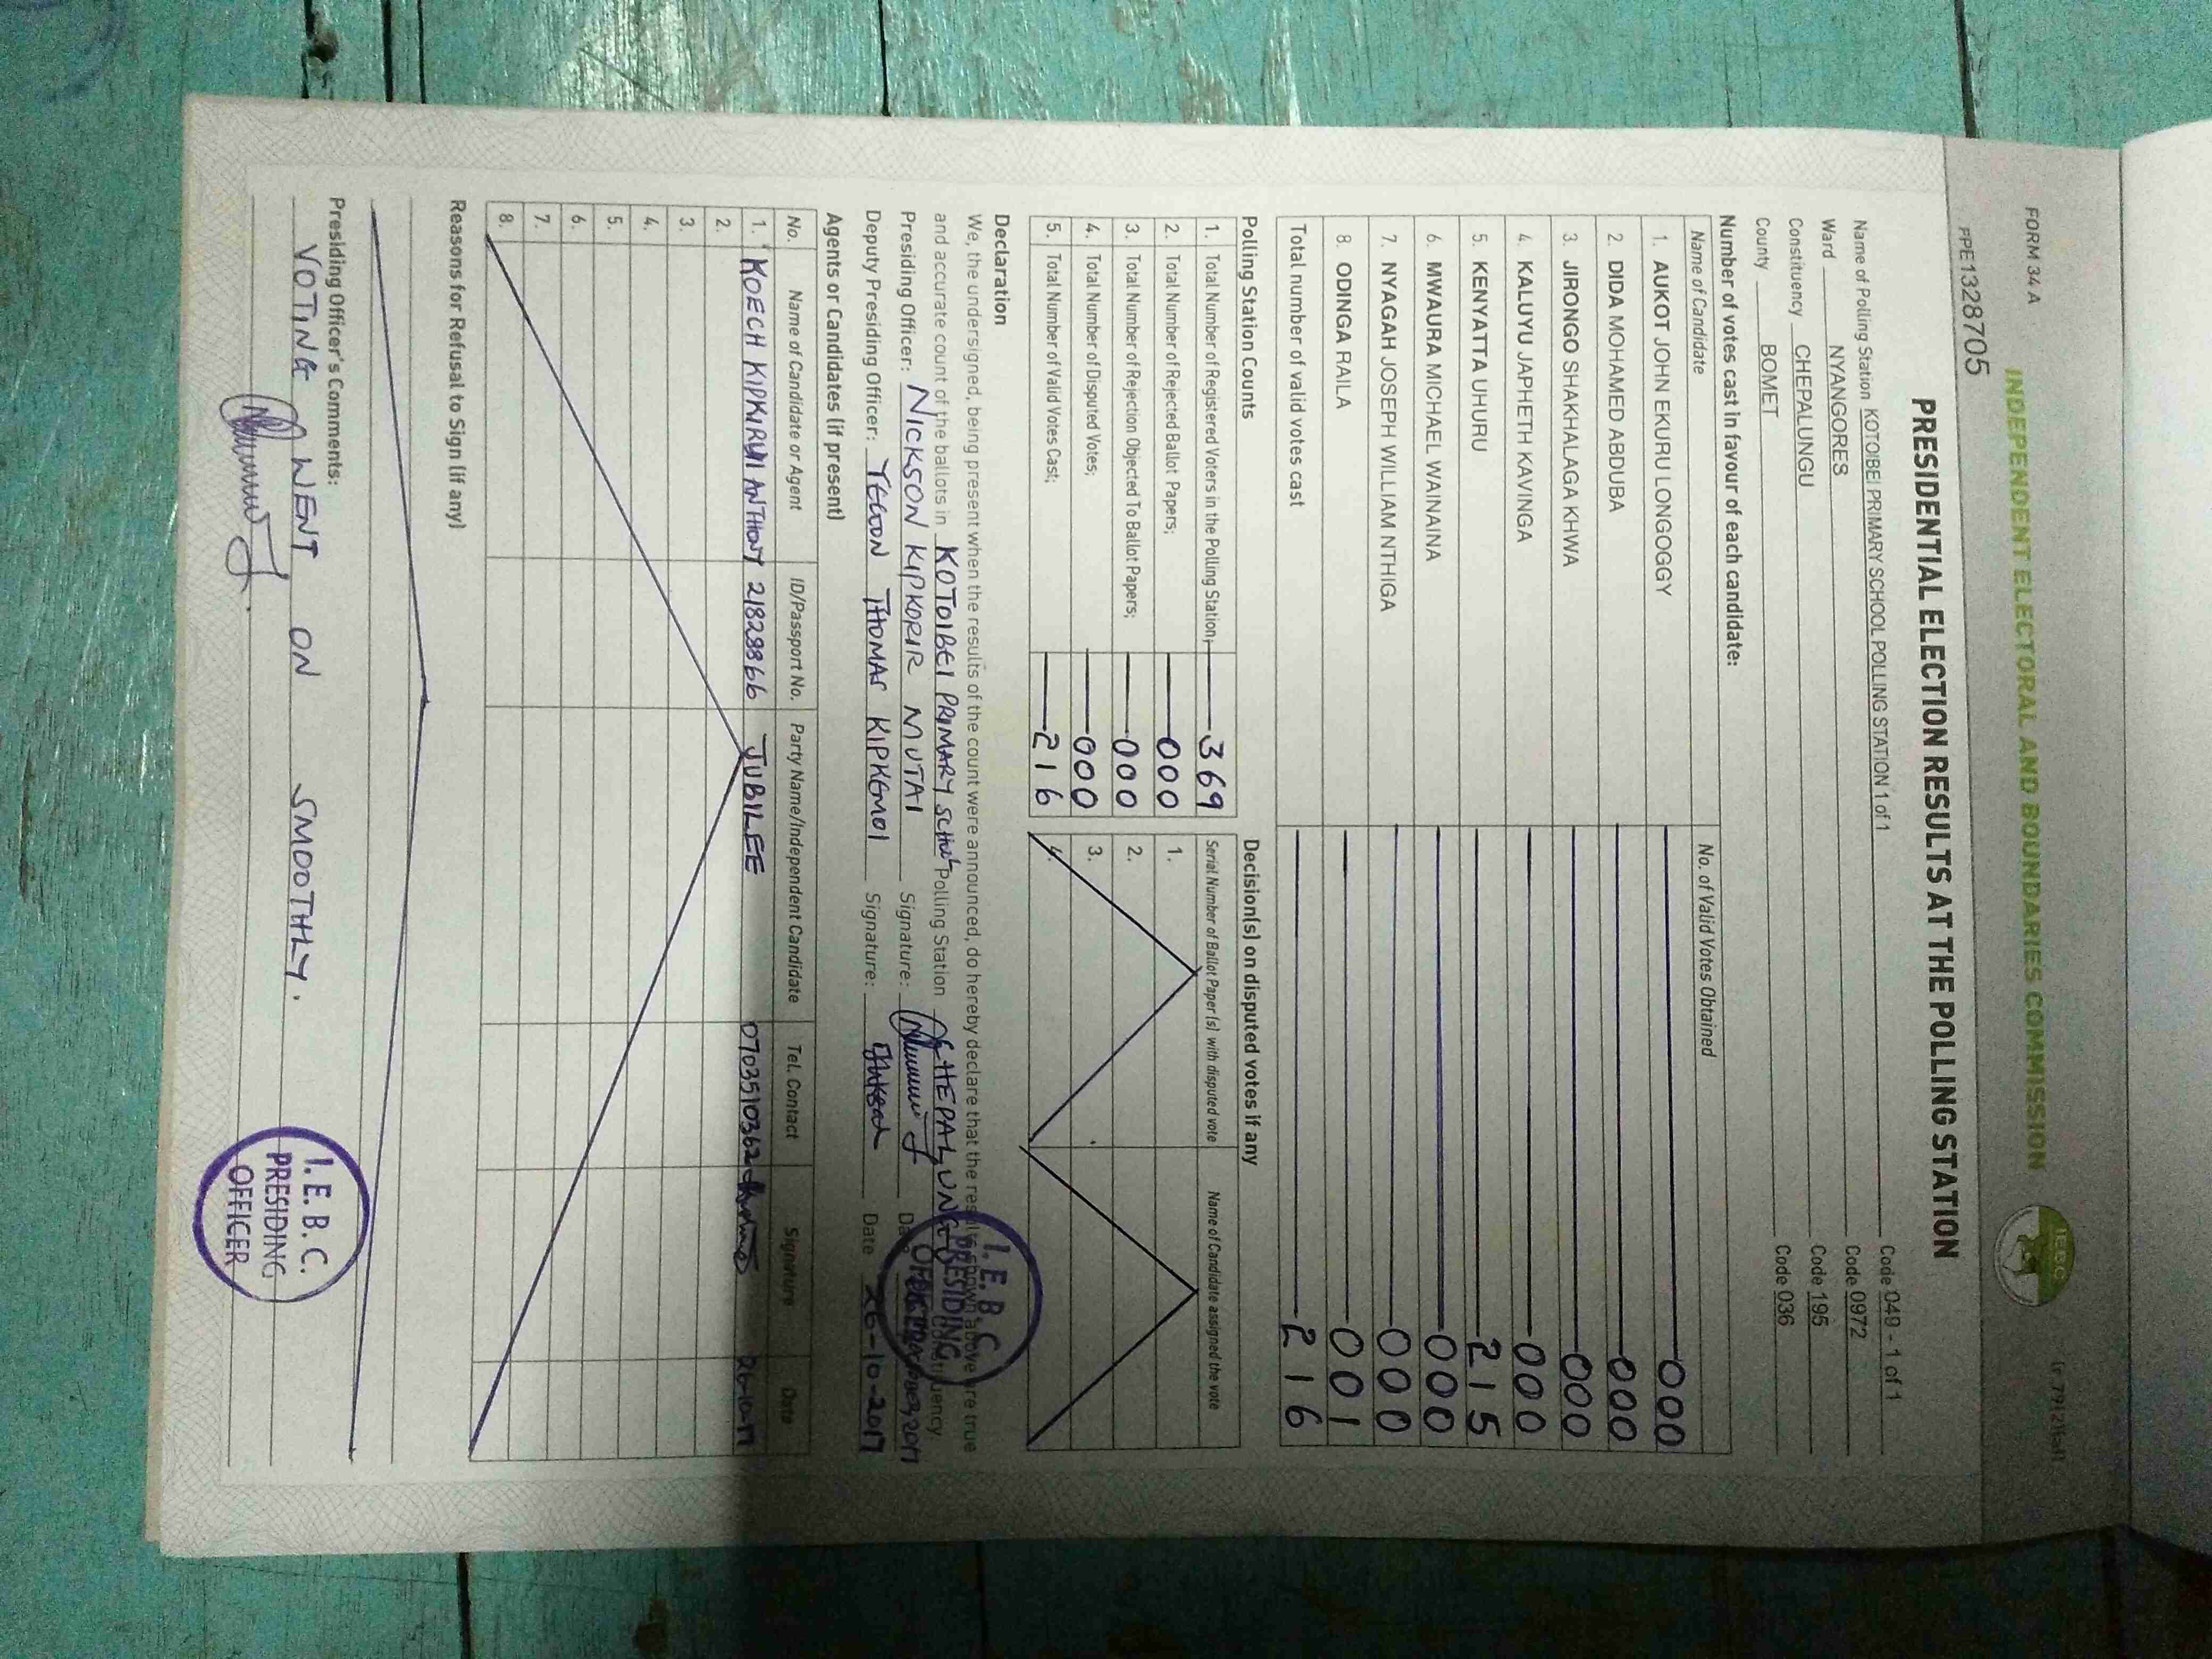 FORM 34 A
INDEPENDENT ELECTORAL AND BOUNDARIES COMMISSION
I.E.B.C
PPE1328705
PRESIDENTIAL ELECTION RESULTS AT THE POLLING STATION
Name of Polling Station KOTOIBEI PRIMARY SCHOOL POLLING STATION 1 of 1 Code 049 - 1 of 1
Ward NYANGORES Code 0972
Constituency CHEPALUNGU Code 195
County BOMET Code 036
Number of votes cast in favour of each candidate:
Name of Candidate No. of Valid Votes Obtained
1. AUKOT JOHN EKURU LONGOGGY 000
2. DIDA MOHAMED ABDUBA 000
3. JIRONGO SHAKHALAGA KHWA 000
4. KALUYU JAPHETH KAVINGA 000
5. KENYATTA UHURU 215
6. MWAURA MICHAEL WAINAINA 000
7. NYAGAH JOSEPH WILLIAM NTHIGA 000
8. ODINGA RAILA 001
Total number of valid votes cast 216
Polling Station Counts Decision(s) on disputed votes if any
1. Total Number of Registered Voters in the Polling Station; 369 Serial Number of Ballot Paper(s) with disputed vote Name of Candidate assigned the vote
2. Total Number of Rejected Ballot Papers; 000 1.
3. Total Number of Rejection Objected To Ballot Papers; 000 2.
4. Total Number of Disputed Votes; 000 3.
5. Total Number of Valid Votes Cast; 216 4.
Declaration
We, the undersigned, being present when the results of the count were announced, do hereby declare that the results shown above are true
and accurate count of the ballots in KOTOIBEI PRIMARY SCHOOL Polling Station CHEPALUNGU Constituency.
Presiding Officer: NICKSON KIPKORIR MUTAI Signature: Date
Deputy Presiding Officer: YEGON THOMAS KIPKEMOI Signature: Date 26-10-2017
I.E.B.C
PRESIDING
OFFICER
Agents or Candidates (if present)
No. Name of Candidate or Agent ID/Passport No. Party Name/Independent Candidate Tel. Contact Signature Date
1. KOECH KIPKIRUI ANTHONY 21828866 JUBILEE 0703510362 26-10-17
2.
3.
4.
5.
6.
7.
8.
Reasons for Refusal to Sign (if any)
Presiding Officer's Comments:
VOTING WENT ON SMOOTHLY.
I.E.B.C.
PRESIDING
OFFICER